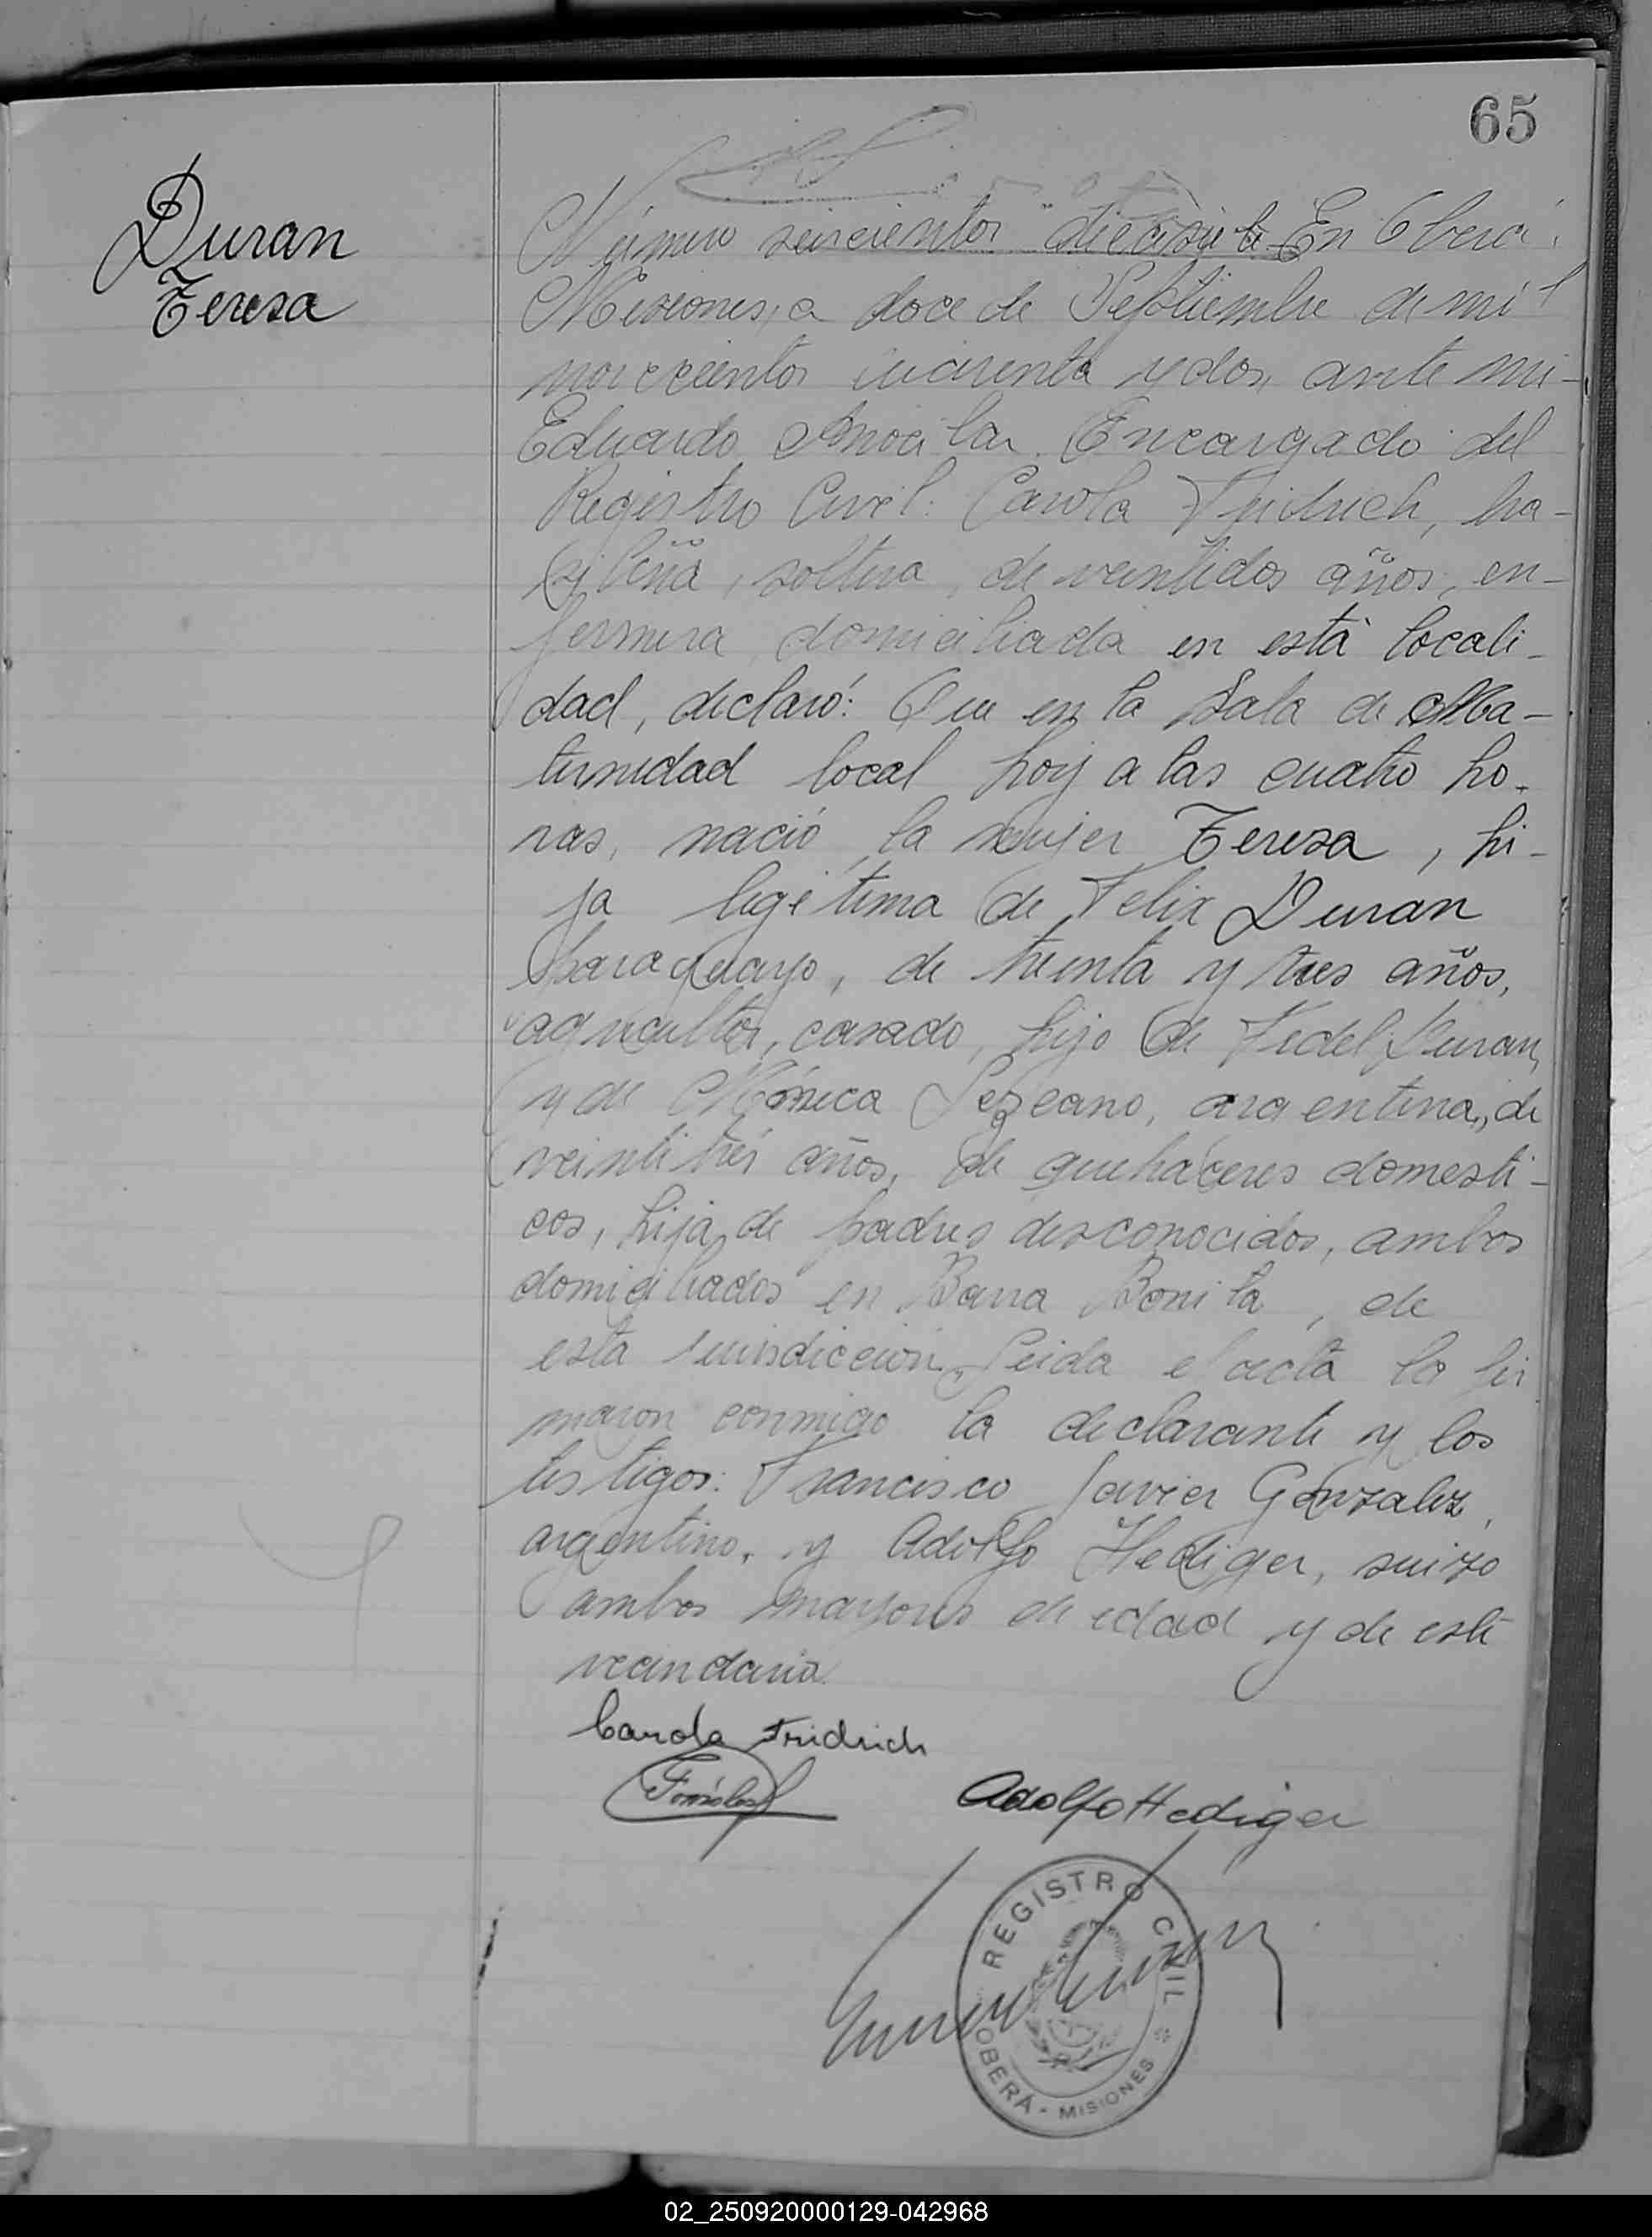 65
Duran
Teresa
Número seiscientos diecisiete En Oberá,
Misiones, a doce de Septiembre de mil
novecientos cuarenta y dos, ante mi
Eduardo Encargado del
Registro Civil: Carola Fridrich, bra-
sileña, soltera, de veintidos años, en-
fermera, domiciliada en está locali-
dad, declaró: Que en la Sala de Ma-
ternidad local hoy a las cuatro ho-
ras, nació, la mujer Teresa, hi-
ja legítima de Felix Duran
paraguayo, de treinta y tres años,
agricultor, casado, hijo de Fidel Duran,
y de Mónica Lezcano, argentina, de
veintitrés años, de quehaceres domesti-
cos, hija de padres desconocidos, ambos
domiciliados en Barra Bonita, de
esta jurisdicción. Leida el acta la fir
maron conmigo la declarante y los
testigos: Francisco Javier Gonzalez,
argentino, y Adolfo Hediger, suizo
ambos mayores de edad y de este
vecindario.
Carola Fridrich
Adolfo Hediger
REGISTRO CIVIL
OBERÁ - MISIONES
02_250920000129-042968